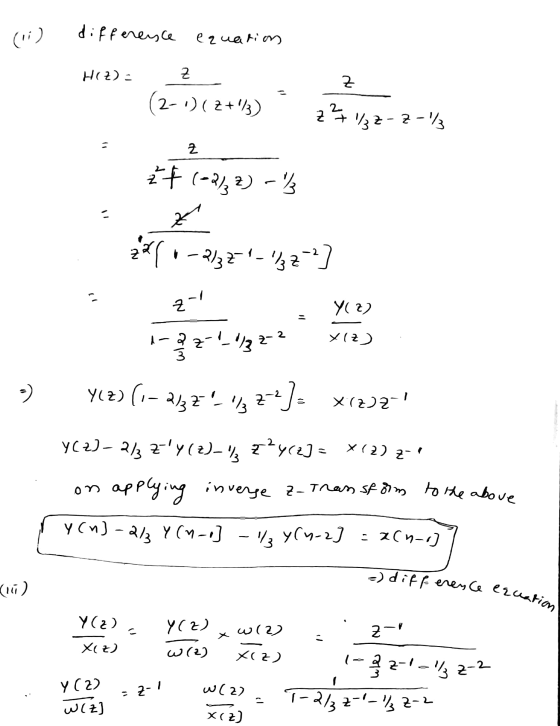 (ii) difference equation
H(z) = z / (z-1)(z+1/3) = z / z² + 1/3 z - z - 1/3
= z / z² + (-2/3 z) - 1/3
= z / z² [1 - 2/3 z⁻¹ - 1/3 z⁻²]
= z⁻¹ / 1 - 2/3 z⁻¹ - 1/3 z⁻² = Y(z) / X(z)
=) Y(z) [1 - 2/3 z⁻¹ - 1/3 z⁻²] = X(z) z⁻¹
Y(z) - 2/3 z⁻¹ Y(z) - 1/3 z⁻² Y(z) = X(z) z⁻¹
on applying inverse z-Transform to the above
y(n) - 2/3 y(n-1) - 1/3 y(n-2) = x(n-1)
=) difference equation
(iii)
Y(z) / X(z) = Y(z) / W(z) × W(z) / X(z) = z⁻¹ / 1 - 2/3 z⁻¹ - 1/3 z⁻²
∴ Y(z) / W(z) = z⁻¹ W(z) / X(z) = 1 / 1 - 2/3 z⁻¹ - 1/3 z⁻²